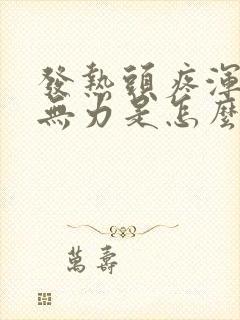 發熱頭疼渾
無力是怎麼
萬壽